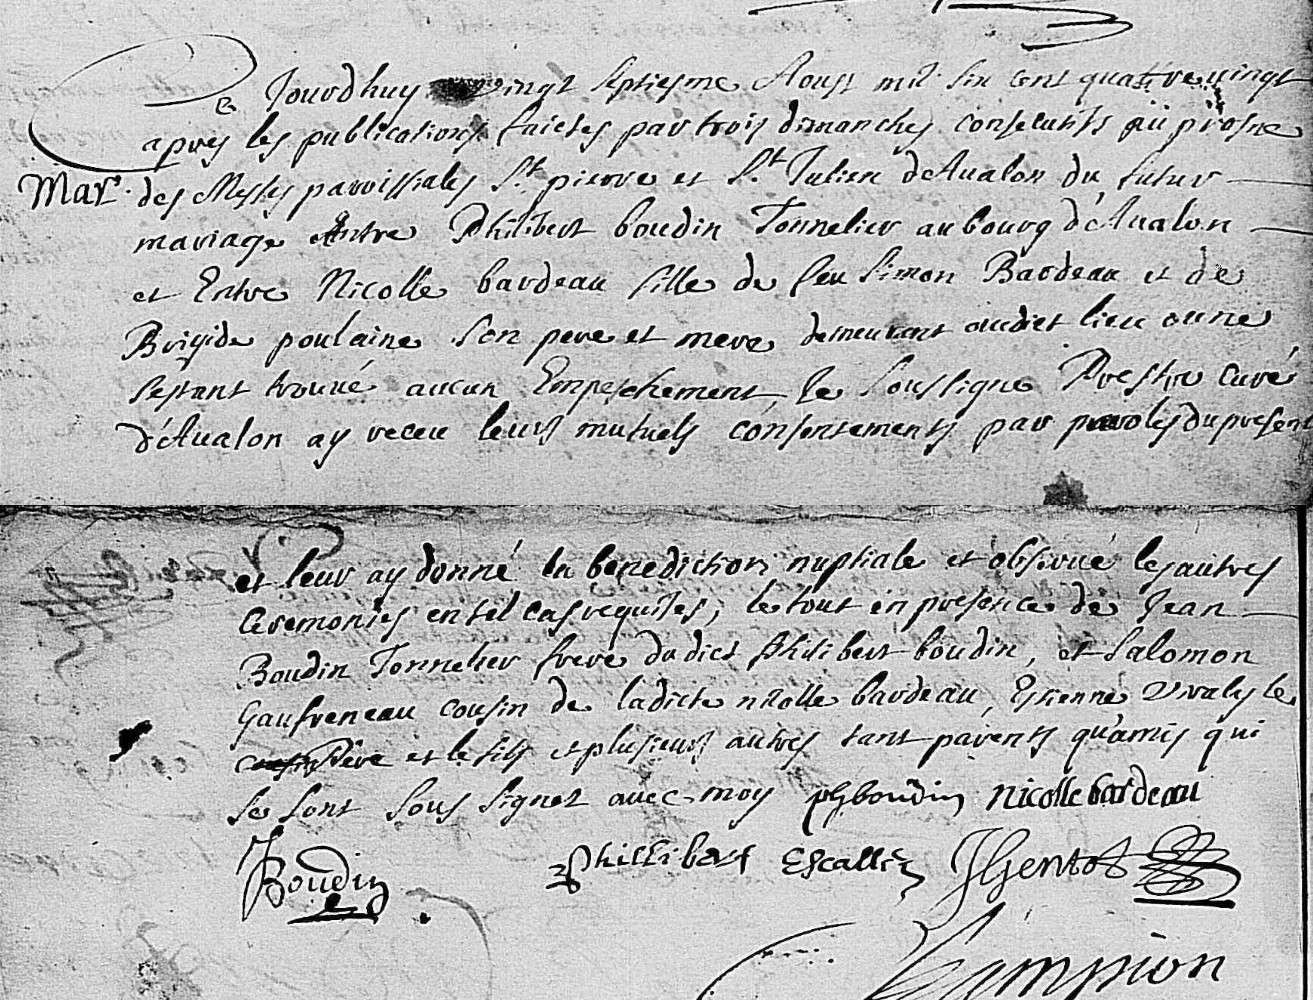 Ce Jourdhuy vingt septiesme Aoust mil six cent quatre vingt
apres les publications faictes par trois dimanches consecutifs au prosne
Mar. des Messes parroissiales St. pierre et St. Julien d'Aualon du futur
mariage Entre Philibert boudin Tonnelier au bourg d'Aualon
et Entre Nicolle bardeau fille de feu Simon Bardeau et de
Brigide poulaine son pere et mere demeurant audict lieu ou ne
sestant trouué aucun Empeschement Je soussigne Prestre curé
d'Aualon ay receu leurs mutuels consentements par paroles du present
et leur ay donné la benediction nuptiale et obserué les autres
Ceremonies en tel cas requises, le tout en presence de Jean
Boudin Tonnelier frere dudict philibert boudin, et Salomon
Gaufreneau cousin de ladicte nicolle bardeau, Estienne le
Pere et le fils et plusieurs autres tant parents qu'amis qui
se sont sous signez avec moy ph boudin nicolle bardeau
J Boudin Phillibert Escallier Gentot
Campion